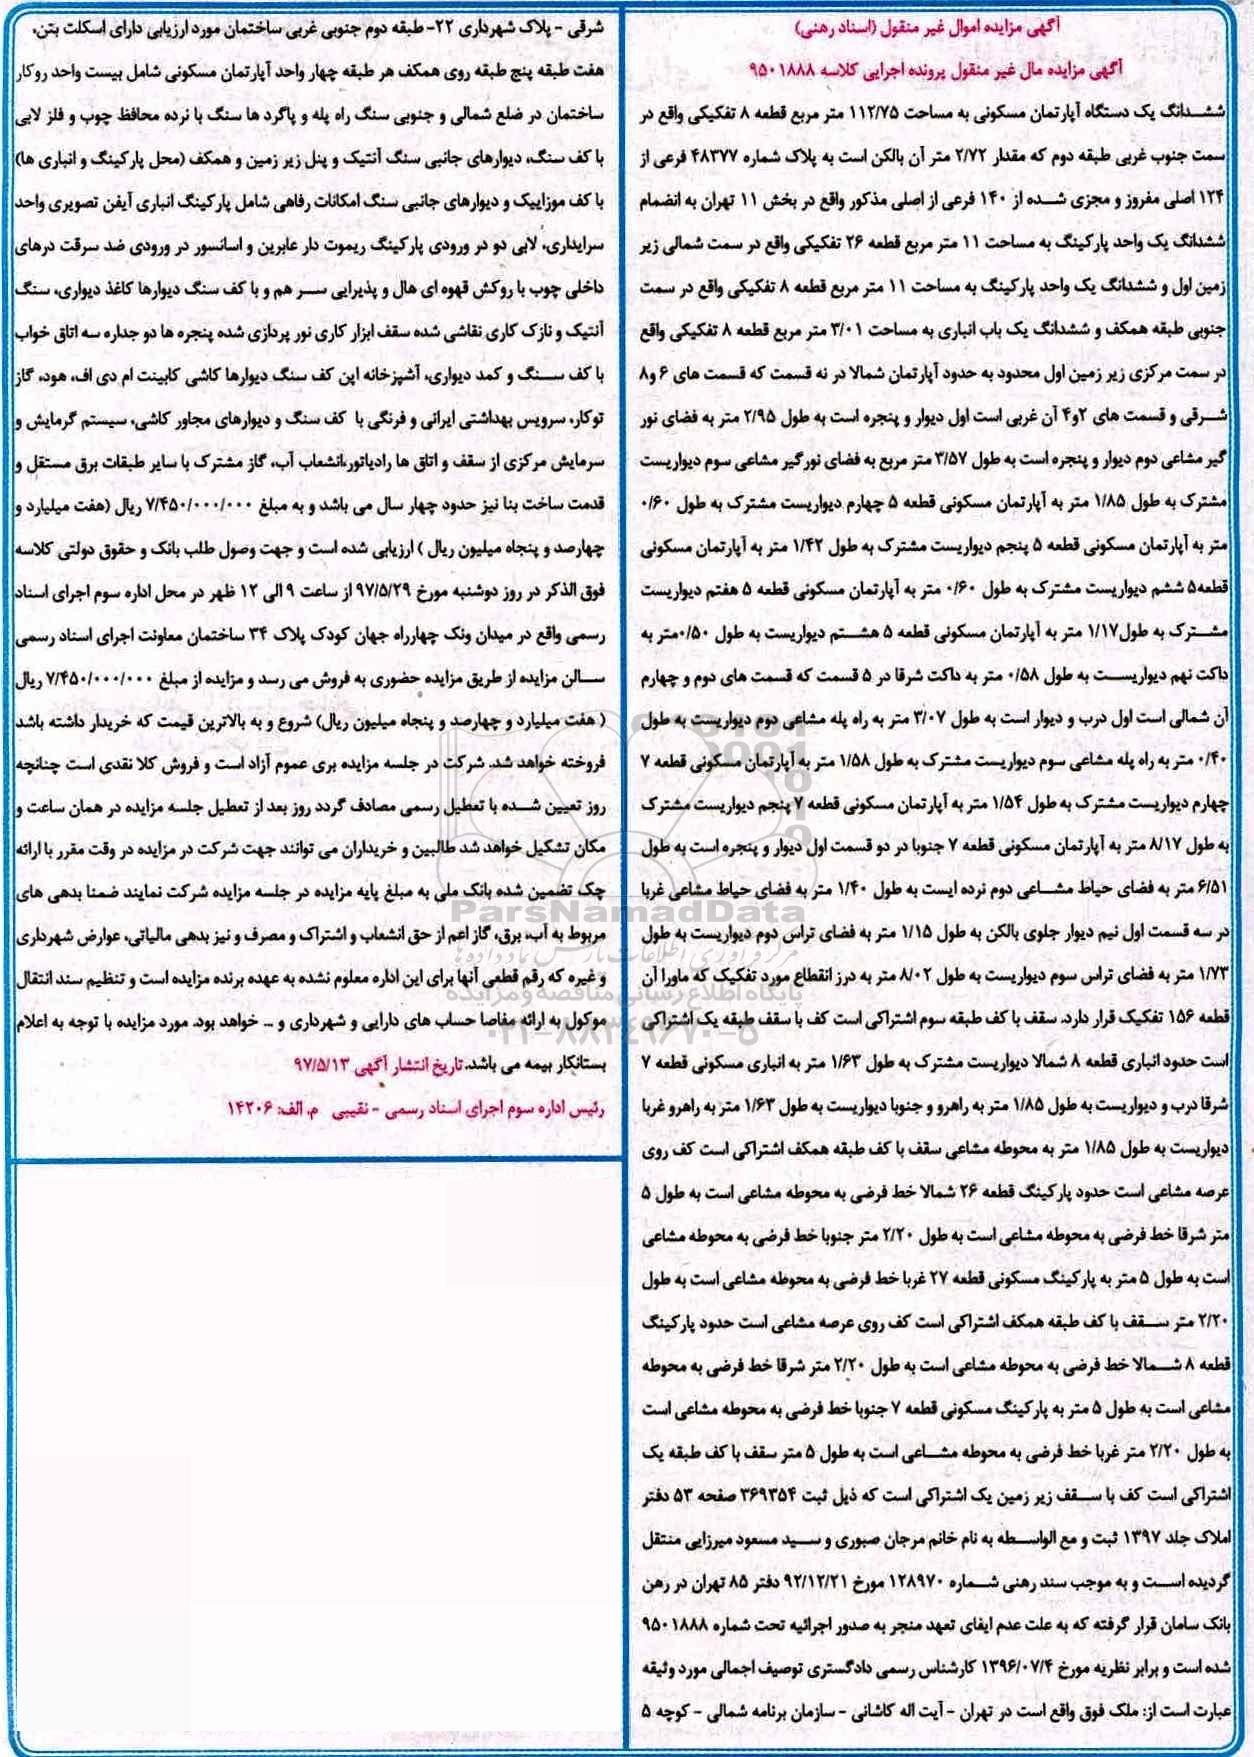 آگهی مزایده اموال غیر منقول (اسناد رهنی)
آگهی مزایده مال غیر منقول پرونده اجرایی کلاسه ۹۵۰۱۸۸۸
ششـدانگ یک دستگاه آپارتمان مسکونی به مساحت ۱۱۲/۷۵ متر مربع قطعه ۸ تفکیکی واقع در
سمت جنوب غربی طبقه دوم که مقدار ۲/۷۲ متر آن بالکن است به پلاک شماره ۴۸۳۷۷ فرعی از
۱۲۴ اصلی مفروز و مجزی شـده از ۱۴۰ فرعی از اصلی مذکور واقع در بخش ۱۱ تهران به انضمام
ششدانگ یک واحد پارکینگ به مساحت ۱۱ متر مربع قطعه ۲۶ تفکیکی واقع در سمت شمالی زیر
زمین اول و ششدانگ یک واحد پارکینگ به مساحت ۱۱ متر مربع قطعه ۸ تفکیکی واقع در سمت
جنوبی طبقه همکف و ششدانگ یک باب انباری به مساحت ۳/۰۱ متر مربع قطعه ۸ تفکیکی واقع
در سمت مرکزی زیر زمین اول محدود به حدود آپارتمان شمالا در نه قسمت که قسمت های ۶ و۸
شـرقی و قسمت های ۲و۴ آن غربی است اول دیوار و پنجره است به طول ۲/۹۵ متر به فضای نور
گیر مشاعی دوم دیوار و پنجره است به طول ۳/۵۷ متر مربع به فضای نورگیر مشاعی سوم دیواریست
مشترک به طول ۱/۸۵ متر به آپارتمان مسکونی قطعه ۵ چهارم دیواریست مشترک به طول ۰/۶۰
متر به آپارتمان مسکونی قطعه ۵ پنجم دیواریست مشترک به طول ۱/۴۲ متر به آپارتمان مسکونی
قطعه۵ ششم دیواریست مشترک به طول ۰/۶۰ متر به آپارتمان مسکونی قطعه ۵ هفتم دیواریست
مشـترک به طول۱/۱۷ متر به آپارتمان مسکونی قطعه ۵ هشـتم دیواریست به طول ۰/۵۰متر به
داکت نهم دیواریسـت به طول ۰/۵۸ متر به داکت شرقا در ۵ قسمت که قسمت های دوم و چهارم
آن شمالی است اول درب و دیوار است به طول ۳/۰۷ متر به راه پله مشاعی دوم دیواریست به طول
۰/۴۰ متر به راه پله مشاعی سوم دیواریست مشترک به طول ۱/۵۸ متر به آپارتمان مسکونی قطعه ۷
چهارم دیواریست مشترک به طول ۱/۵۴ متر به آپارتمان مسکونی قطعه ۷ پنجم دیواریست مشترک
به طول ۸/۱۷ متر به آپارتمان مسکونی قطعه ۷ جنوبا در دو قسمت اول دیوار و پنجره است به طول
۶/۵۱ متر به فضای حیاط مشـاعی دوم نرده ایست به طول ۱/۴۰ متر به فضای حیاط مشاعی غربا
در سه قسمت اول نیم دیوار جلوی بالکن به طول ۱/۱۵ متر به فضای تراس دوم دیواریست به طول
۱/۷۳ متر به فضای تراس سوم دیواریست به طول ۸/۰۲ متر به درز انقطاع مورد تفکیک که ماورا آن
قطعه ۱۵۶ تفکیک قرار دارد. سقف با کف طبقه سوم اشتراکی است کف با سقف طبقه یک اشتراکی
است حدود انباری قطعه ۸ شمالا دیواریست مشترک به طول ۱/۶۳ متر به انباری مسکونی قطعه ۷
شرقا درب و دیواریست به طول ۱/۸۵ متر به راهرو و جنوبا دیواریست به طول ۱/۶۳ متر به راهرو غربا
دیواریست به طول ۱/۸۵ متر به محوطه مشاعی سقف با کف طبقه همکف اشتراکی است کف روی
عرصه مشاعی است حدود پارکینگ قطعه ۲۶ شمالا خط فرضی به محوطه مشاعی است به طول ۵
متر شرقا خط فرضی به محوطه مشاعی است به طول ۲/۲۰ متر جنوبا خط فرضی به محوطه مشاعی
است به طول ۵ متر به پارکینگ مسکونی قطعه ۲۷ غربا خط فرضی به محوطه مشاعی است به طول
۲/۲۰ متر سـقف با کف طبقه همکف اشتراکی است کف روی عرصه مشاعی است حدود پارکینگ
قطعه ۸ شـمالا خط فرضی به محوطه مشاعی است به طول ۲/۲۰ متر شرقا خط فرضی به محوطه
مشاعی است به طول ۵ متر به پارکینگ مسکونی قطعه ۷ جنوبا خط فرضی به محوطه مشاعی است
به طول ۲/۲۰ متر غربا خط فرضی به محوطه مشـاعی است به طول ۵ متر سقف با کف طبقه یک
اشتراکی است کف با سـقف زیر زمین یک اشتراکی است که ذیل ثبت ۳۶۹۳۵۴ صفحه ۵۳ دفتر
املاک جلد ۱۳۹۷ ثبت و مع الواسـطه به نام خانم مرجان صبوری و سـید مسعود میرزایی منتقل
گردیده اسـت و به موجب سند رهنی شـماره ۱۲۸۹۷۰ مورخ ۹۲/۱۲/۲۱ دفتر ۸۵ تهران در رهن
بانک سامان قرار گرفته که به علت عدم ایفای تعهد منجر به صدور اجرائیه تحت شماره ۹۵۰۱۸۸۸
شده است و برابر نظریه مورخ ۱۳۹۶/۰۷/۴ کارشناس رسمی دادگستری توصیف اجمالی مورد وثیقه
عبارت است از: ملک فوق واقع است در تهران - آیت اله کاشانی - سازمان برنامه شمالی - کوچه ۵
شرقی - پلاک شهرداری ۲۲- طبقه دوم جنوبی غربی ساختمان مورد ارزیابی دارای اسکلت بتن،
هفت طبقه پنج طبقه روی همکف هر طبقه چهار واحد آپارتمان مسکونی شامل بیست واحد روکار
ساختمان در ضلع شمالی و جنوبی سنگ راه پله و پاگرد ها سنگ با نرده محافظ چوب و فلز لابی
با کف سنگ، دیوارهای جانبی سنگ آنتیک و پنل زیر زمین و همکف (محل پارکینگ و انباری ها)
با کف موزاییک و دیوارهای جانبی سنگ امکانات رفاهی شامل پارکینگ انباری آیفن تصویری واحد
سرایداری، لابی دو در ورودی پارکینگ ریموت دار عابرین و اسانسور در ورودی ضد سرقت درهای
داخلی چوب با روکش قهوه ای هال و پذیرایی سـر هم و با کف سنگ دیوارها کاغذ دیواری، سنگ
آنتیک و نازک کاری نقاشی شده سقف ابزار کاری نور پردازی شده پنجره ها دو جداره سه اتاق خواب
با کف سـنگ و کمد دیواری، آشپزخانه اپن کف سنگ دیوارها کاشی کابینت ام دی اف، هود، گاز
توکار، سرویس بهداشتی ایرانی و فرنگی با کف سنگ و دیوارهای مجاور کاشی، سیستم گرمایش و
سرمایش مرکزی از سقف و اتاق ها رادیاتور،انشعاب آب، گاز مشترک با سایر طبقات برق مستقل و
قدمت ساخت بنا نیز حدود چهار سال می باشد و به مبلغ ۷/۴۵۰/۰۰۰/۰۰۰ ریال (هفت میلیارد و
چهارصد و پنجاه میلیون ریال ) ارزیابی شده است و جهت وصول طلب بانک و حقوق دولتی کلاسه
فوق الذکر در روز دوشنبه مورخ ۹۷/۵/۲۹ از ساعت ۹ الی ۱۲ ظهر در محل اداره سوم اجرای اسناد
رسمی واقع در میدان ونک چهارراه جهان کودک پلاک ۳۴ ساختمان معاونت اجرای اسناد رسمی
سـالن مزایده از طریق مزایده حضوری به فروش می رسد و مزایده از مبلغ ۷/۴۵۰/۰۰۰/۰۰۰ ریال
( هفت میلیارد و چهارصد و پنجاه میلیون ریال) شروع و به بالاترین قیمت که خریدار داشته باشد
فروخته خواهد شد. شرکت در جلسه مزایده بری عموم آزاد است و فروش کلا نقدی است چنانچه
روز تعیین شـده با تعطیل رسمی مصادف گردد روز بعد از تعطیل جلسه مزایده در همان ساعت و
مکان تشکیل خواهد شد طالبین و خریداران می توانند جهت شرکت در مزایده در وقت مقرر با ارائه
چک تضمین شده بانک ملی به مبلغ پایه مزایده در جلسه مزایده شرکت نمایند ضمنا بدهی های
مربوط به آب، برق، گاز اعم از حق انشعاب و اشتراک و مصرف و نیز بدهی مالیاتی، عوارض شهرداری
و غیره که رقم قطعی آنها برای این اداره معلوم نشده به عهده برنده مزایده است و تنظیم سند انتقال
موکول به ارائه مفاصا حساب های دارایی و شهرداری و ... خواهد بود. مورد مزایده با توجه به اعلام
بستانکار بیمه می باشد. تاریخ انتشار آگهی ۹۷/۵/۱۳
رئیس اداره سوم اجرای اسناد رسمی - نقیبی م. الف: ۱۴۲۰۶
ParsNamadData
مرکز فرآوری اطلاعات پارس نماد داده ها
پایگاه اطلاع رسانی مناقصه و مزایده
۰۲۱-۸۸۳۴۹۶۷۰-۵